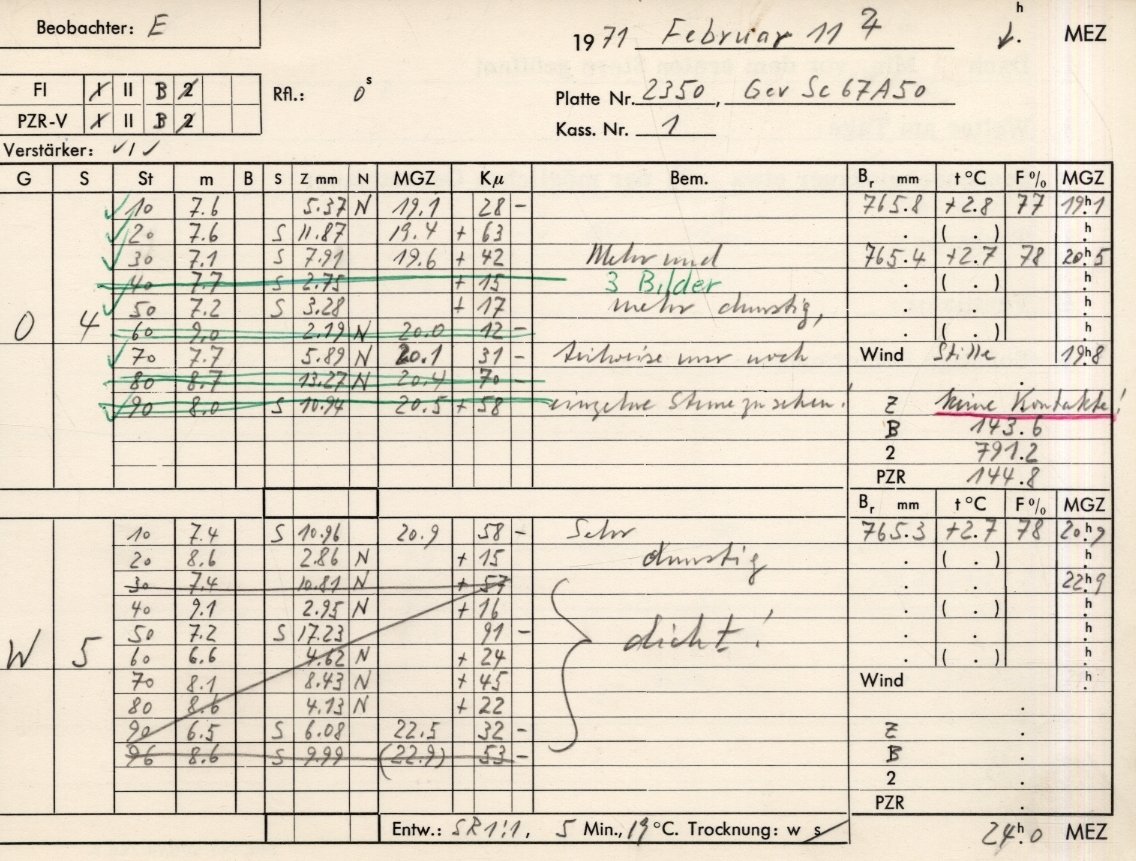 Beobachter: E
1971 Februar 11 h MEZ
FI I II B 2
Rfl.: 0 s
Platte Nr. 2350, Gev Sc 67A50
PZR-V I II B 2
Kass. Nr. 1
Verstärker: √ I √
G S St m B S Z mm N MGZ Kμ Bem. Br mm t °C F % MGZ
10 7.6 5.37 N 19.1 28 - 765.8 +2.8 77 19h1
20 7.6 S 11.87 19.4 + 63 . ( . ) h
30 7.1 S 7.91 19.6 + 42 Mehr und 765.4 +2.7 78 20h5
40 7.7 S 2.75 + 15 3 Bilder . ( . ) h
50 7.2 S 3.28 + 17 mehr dunstig, . . h
O 4 60 9.0 2.19 N 20.0 12 - . ( . ) h
70 7.7 5.89 N 20.1 31 - teilweise nur noch Wind Stille 19h8
80 8.7 13.27 N 20.4 70 -
90 8.0 S 10.94 20.5 + 58 einzelne Sterne zu sehen! Z keine Kontakte!
B 143.6
2 791.2
PZR 144.8
Br mm t °C F % MGZ
10 7.4 S 10.96 20.9 58 - Sehr 765.3 +2.7 78 20h7
20 8.6 2.86 N + 15 dunstig . ( . ) h
30 7.4 10.81 N + 57 . . 22h9
40 9.1 2.95 N + 16 . ( . ) h
50 7.2 S 17.23 91 - dicht! . . h
W 5 60 6.6 4.62 N + 24 . ( . ) h
70 8.1 8.43 N + 45 Wind h
80 8.6 4.13 N + 22
90 6.5 S 6.08 22.5 32 - Z .
96 8.6 S 9.99 (22.9) 53 - B .
2 .
PZR .
Entw.: SR 1:1, 5 Min., 19 °C. Trocknung: w s 24h0 MEZ